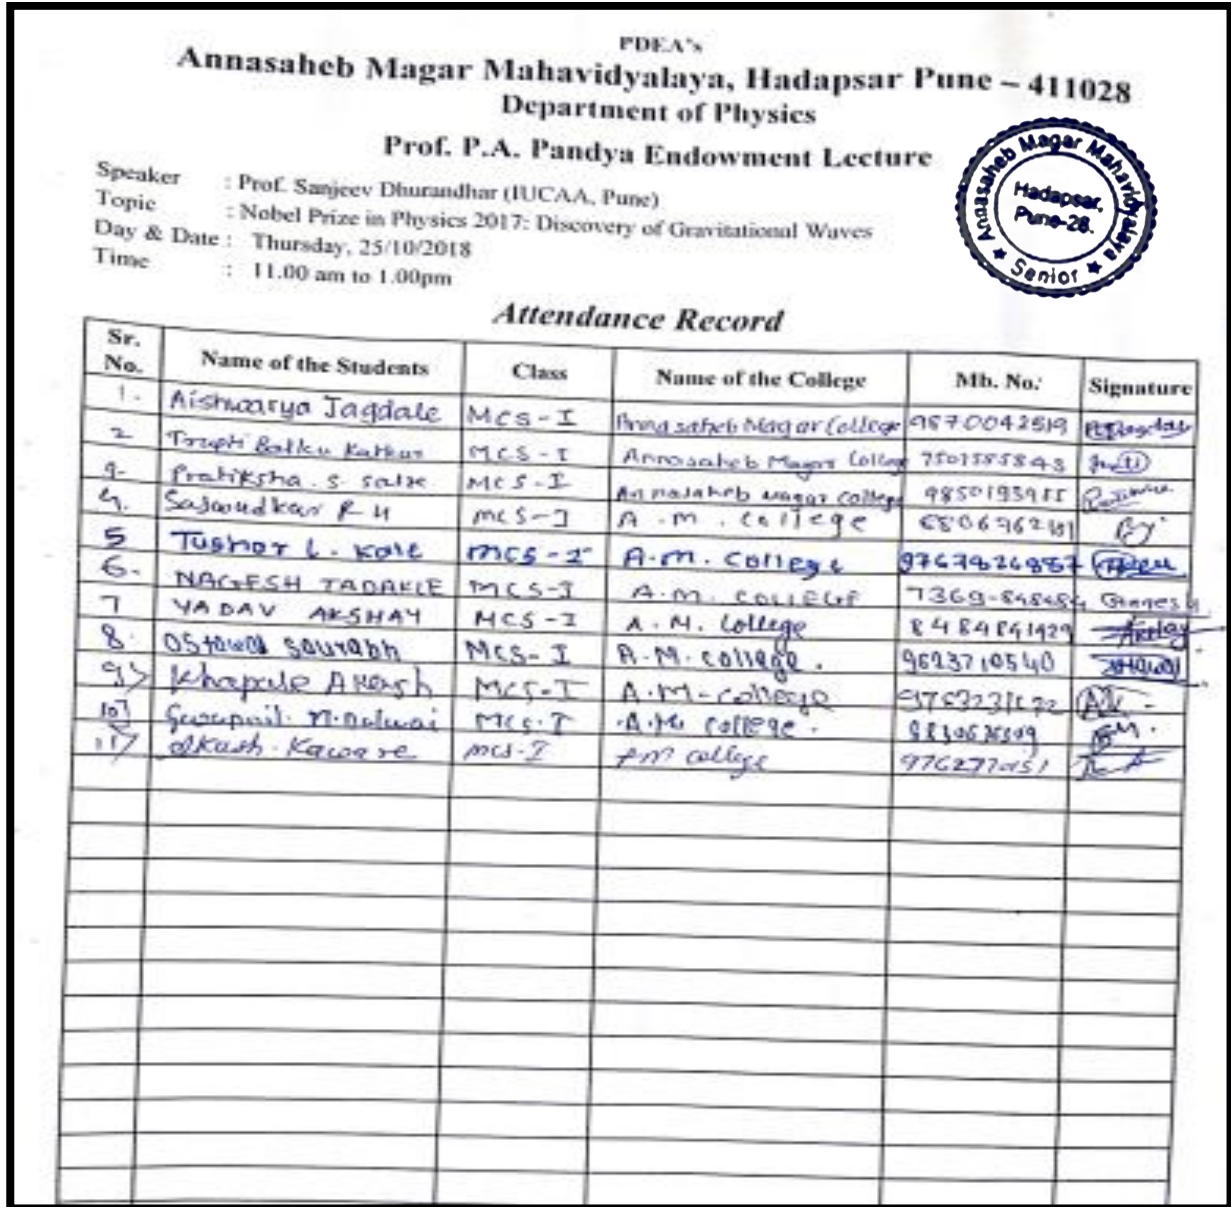 PDEA's
Annasaheb Magar Mahavidyalaya, Hadapsar Pune – 411028
Department of Physics
Prof. P.A. Pandya Endowment Lecture
Annasaheb Magar Mahavidyalaya
Hadapsar,
Pune-28.
★ Senior ★
Speaker : Prof. Sanjeev Dhurandhar (IUCAA, Pune)
Topic : Nobel Prize in Physics 2017: Discovery of Gravitational Waves
Day & Date : Thursday, 25/10/2018
Time : 11.00 am to 1.00pm
Attendance Record
Sr. No. Name of the Students Class Name of the College Mb. No. Signature
1. Aishwarya Jagdale MCS-I Annasaheb Magar College 9870042519
2 Trupti MCS-I Annasaheb Magar College
Pratiksha. S MCS-I Annasaheb Magar College
4. R H MCS-I A.M. College
5 Tushar L. Kale MCS-I A.M. College
6. NAGESH MCS-I A.M. COLLEGE
7 YADAV AKSHAY MCS-I A.M. College 8484841929
8. Sourabh MCS-I A.M. College. 9623710540
9) Khapale Akash MCS-I A.M-College
10) MCS-I A.M. College.
11) Akash. Kaware MCS-I AM College